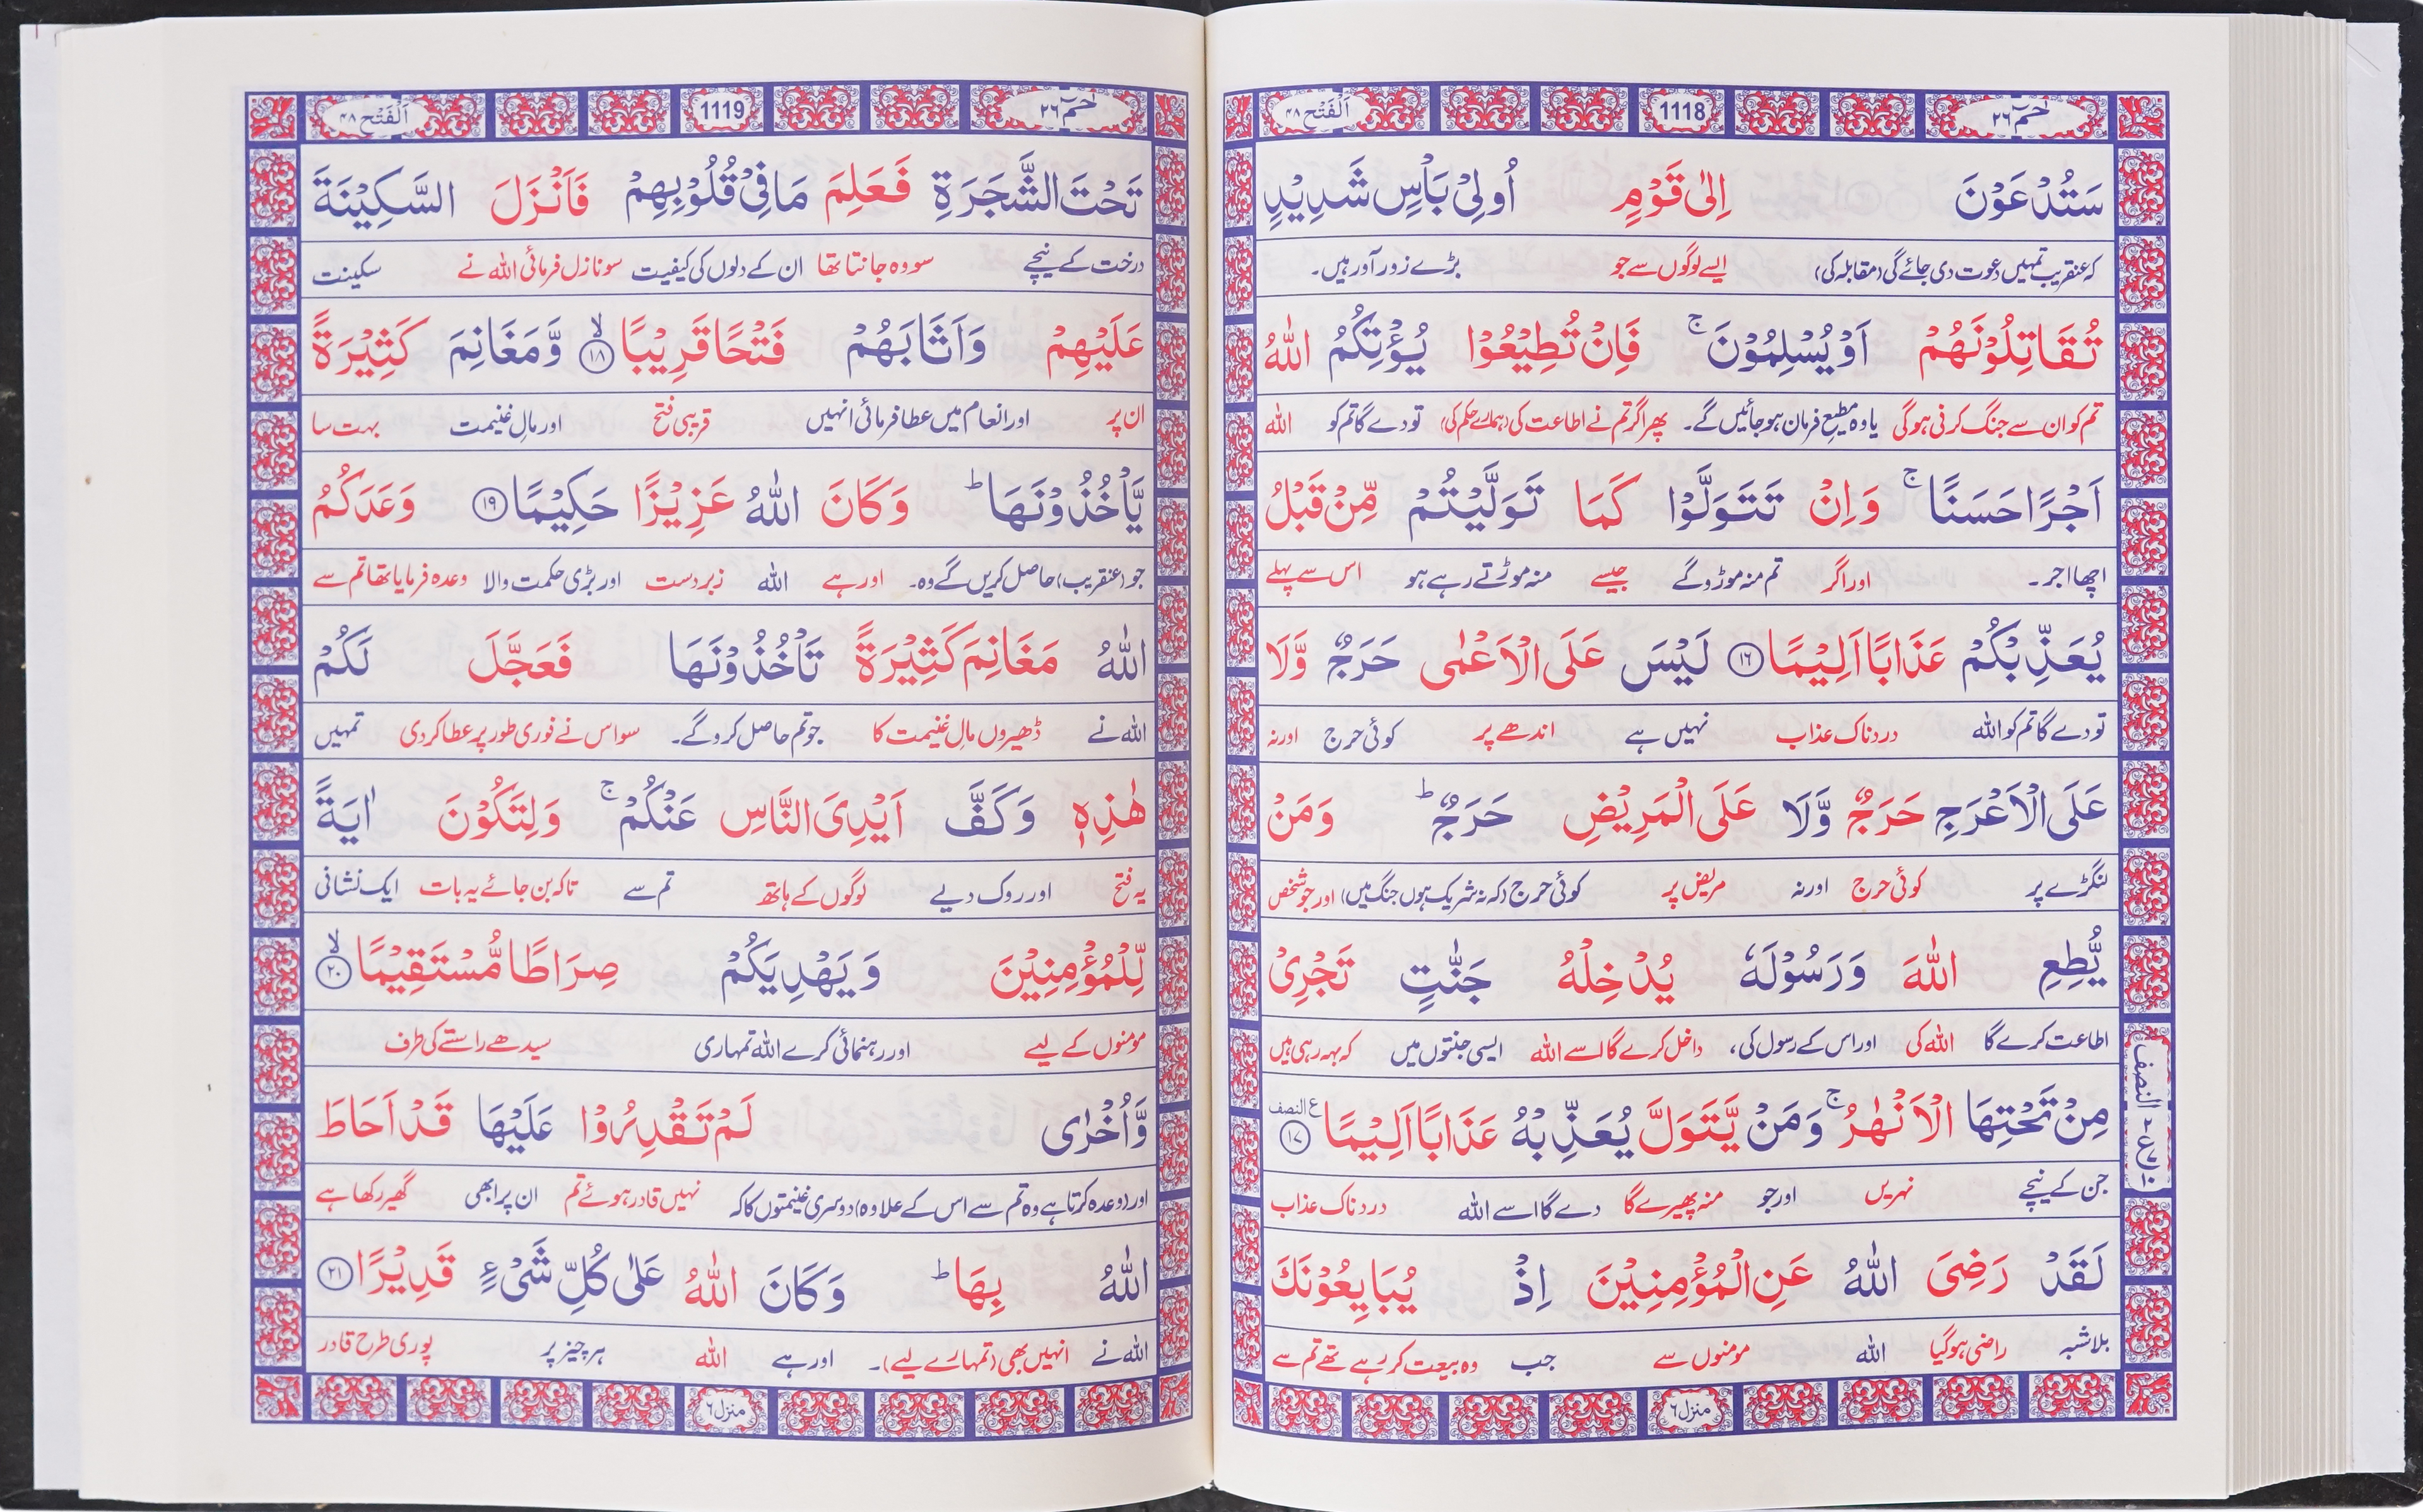 حٰمٓ ٢٦ 1118 اَلْفَتْح ٤٨
سَتُدْعَوْنَ اِلٰى قَوْمٍ اُولِیْ بَاْسٍ شَدِیْدٍ
کہ عنقریب تمہیں دعوت دی جائے گی (مقابلہ کی) ایسے لوگوں سے جو بڑے زور آور ہیں۔
تُقَاتِلُوْنَهُمْ اَوْ یُسْلِمُوْنَ ۚ فَاِنْ تُطِیْعُوْا یُؤْتِكُمُ اللّٰهُ
تم کو ان سے جنگ کرنی ہوگی یا وہ مطیع فرمان ہو جائیں گے۔ پھر اگر تم نے اطاعت کی (ہمارے حکم کی) تو دے گا تم کو اللہ
اَجْرًا حَسَنًا ۚ وَاِنْ تَتَوَلَّوْا كَمَا تَوَلَّیْتُمْ مِّنْ قَبْلُ
اچھا اجر۔ اور اگر تم منہ موڑو گے جیسے منہ موڑتے رہے ہو اس سے پہلے
یُعَذِّبْكُمْ عَذَابًا اَلِیْمًا ١٦ لَیْسَ عَلَى الْاَعْمٰى حَرَجٌ وَّلَا
تو دے گا تم کو اللہ دردناک عذاب نہیں ہے اندھے پر کوئی حرج اور نہ
عَلَى الْاَعْرَجِ حَرَجٌ وَّلَا عَلَى الْمَرِیْضِ حَرَجٌ ؕ وَمَنْ
لنگڑے پر کوئی حرج اور نہ مریض پر کوئی حرج (کہ نہ شریک ہوں جنگ میں) اور جو شخص
یُّطِعِ اللّٰهَ وَرَسُوْلَهٗ یُدْخِلْهُ جَنّٰتٍ تَجْرِیْ
اطاعت کرے گا اللہ کی اور اس کے رسول کی، داخل کرے گا اسے اللہ ایسی جنتوں میں کہ بہہ رہی ہیں
مِنْ تَحْتِهَا الْاَنْهٰرُ ۚ وَمَنْ یَّتَوَلَّ یُعَذِّبْهُ عَذَابًا اَلِیْمًا ١٧ ع النصف
جن کے نیچے نہریں اور جو منہ پھیرے گا دے گا اسے اللہ دردناک عذاب
لَقَدْ رَضِیَ اللّٰهُ عَنِ الْمُؤْمِنِیْنَ اِذْ یُبَایِعُوْنَكَ
بلاشبہ راضی ہوگیا اللہ مومنوں سے جب وہ بیعت کر رہے تھے تم سے
منزل ٦
النصف
حٰمٓ ٢٦ 1119 اَلْفَتْح ٤٨
تَحْتَ الشَّجَرَةِ فَعَلِمَ مَا فِیْ قُلُوْبِهِمْ فَاَنْزَلَ السَّكِیْنَةَ
درخت کے نیچے سو وہ جانتا تھا ان کے دلوں کی کیفیت سو نازل فرمائی اللہ نے سکینت
عَلَیْهِمْ وَاَثَابَهُمْ فَتْحًا قَرِیْبًا ۙ ١٨ وَّمَغَانِمَ كَثِیْرَةً
ان پر اور انعام میں عطا فرمائی انہیں قریبی فتح اور مالِ غنیمت بہت سا
یَّاْخُذُوْنَهَا ؕ وَكَانَ اللّٰهُ عَزِیْزًا حَكِیْمًا ١٩ وَعَدَكُمُ
جو (عنقریب) حاصل کریں گے وہ۔ اور ہے اللہ زبردست اور بڑی حکمت والا وعدہ فرمایا تھا تم سے
اللّٰهُ مَغَانِمَ كَثِیْرَةً تَاْخُذُوْنَهَا فَعَجَّلَ لَكُمْ
اللہ نے ڈھیروں مالِ غنیمت کا جو تم حاصل کرو گے۔ سو اس نے فوری طور پر عطا کر دی تمہیں
هٰذِهٖ وَكَفَّ اَیْدِیَ النَّاسِ عَنْكُمْ ۚ وَلِتَكُوْنَ اٰیَةً
یہ فتح اور روک دیے لوگوں کے ہاتھ تم سے تاکہ بن جائے یہ بات ایک نشانی
لِّلْمُؤْمِنِیْنَ وَیَهْدِیَكُمْ صِرَاطًا مُّسْتَقِیْمًا ۙ ٢٠
مومنوں کے لیے اور رہنمائی کرے اللہ تمہاری سیدھے راستے کی طرف
وَّاُخْرٰى لَمْ تَقْدِرُوْا عَلَیْهَا قَدْ اَحَاطَ
اور (وعدہ کرتا ہے وہ تم سے اس کے علاوہ) دوسری غنیمتوں کا کہ نہیں قادر ہوئے تم ان پر ابھی گھیر رکھا ہے
اللّٰهُ بِهَا ؕ وَكَانَ اللّٰهُ عَلٰى كُلِّ شَیْءٍ قَدِیْرًا ٢١
اللہ نے انہیں بھی (تمہارے لیے)۔ اور ہے اللہ ہر چیز پر پوری طرح قادر
منزل ٦